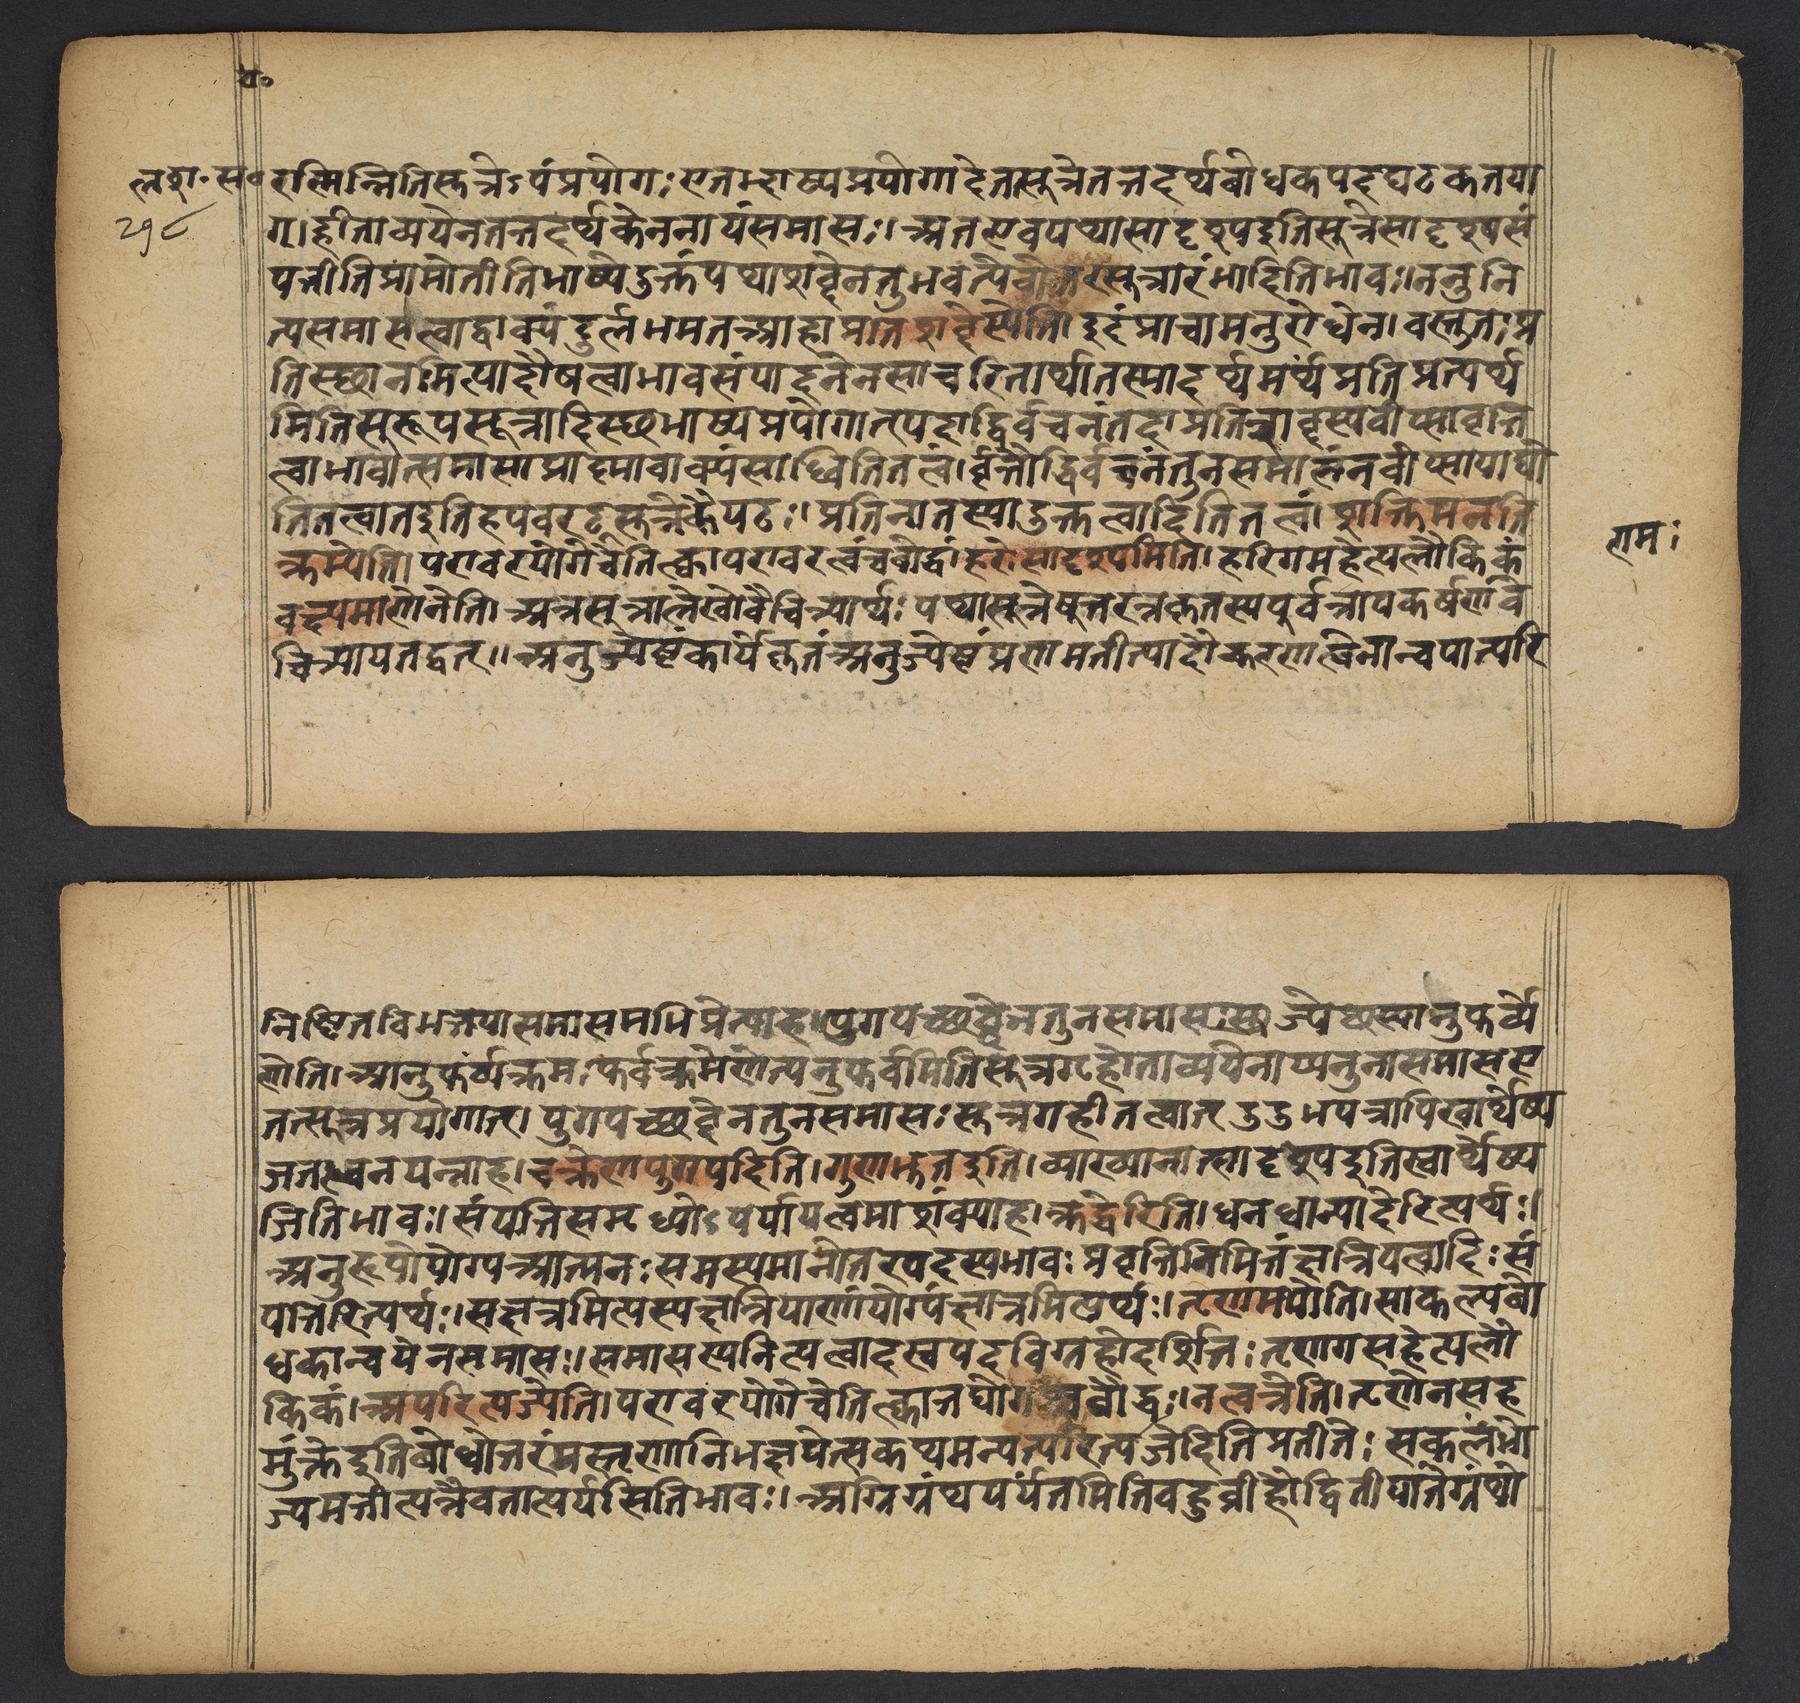 य॰
ल॰शा॰स॰ रस्मिन्नितिसूत्रेऽपंप्रयोगः एतम्भाष्यप्रयोगादेतत्सूत्रेतत्तदर्थबोधकपदघटकतया
२१८ गृहीताव्ययेनतत्तदर्थकेननायंसमासः। अतएवपथ्यासादृश्यइतिसूत्रेसादृश्यसं
पत्तीतिप्राप्नोतीतिभाष्येउक्तंपथाशब्देनतुभवत्येवोत्तरसूत्रारंभादितिभावः। ननुनि
त्यसमासत्वाद्वाक्यंदुर्लभमतआह। प्रतिशब्देस्येति। इदंप्राचामनुरोधेन। वस्तुतः प्र
तिस्थानमित्यादौषत्वाभावसंपादनेनसाचरितार्थातस्मादर्थमर्थंप्रतिप्रत्यर्थ
मितिसुरूपसूत्रादिस्थभाष्यप्रयोगात्पदाद्विर्वचनंतदाप्रतिशब्दस्यवीप्सावृत्ति
त्वाभावात्समासाप्राप्त्यावाक्यंसाध्वितितत्वं। वृत्तौद्विर्वचनंतुनसमासेनवीप्सायाद्यो
तितत्वातइतिहयवरट्सूत्रेकैयटः। प्रतिनातस्याउक्तत्वादितितत्वं। शक्तिमनति
क्रम्येति। परावरयोगेचेतिक्त्वापरावरत्वंचबौद्धं। हरेःसादृश्यमिति। हरिगमहेत्यलौकिकं
वक्ष्यमाणेनेति। अत्रसूत्रात्लेखोवैचित्र्यार्थः पथासूत्रेषूत्तरत्रक्तस्यपूर्वत्रापकर्षणवै
चित्र्यापतद्वत्॥ अनुज्येष्ठंकार्येक्तंअनुज्येष्ठंप्रणमतीत्यादौकरणत्वेनान्वयात्परि
रामः
निष्ठितविभक्त्यासमासमभिप्रेत्याह। युगपच्छब्देनतुनसमासः ज्येष्ठस्यानुपूर्व्ये
णेति। आनुपूर्व्यंक्रमः पूर्वक्रमेणेत्यनुपूर्वमितिसूत्रगृहीताव्ययेनाप्यनुनासमासए
तत्सूत्रप्रयोगात्। युगपच्छब्देनतुनसमासः सूत्रगृहीतत्वात् उउभयत्रापिस्वार्थेष्य
ञतत्वनयन्नाह। चक्रेणयुगपदिति। गुणभूतइति। व्याख्यानात्सादृश्यइतिस्वार्थेष्य
ञितिभावः। संपत्तिसमृध्योऽपर्यायत्वमाशंक्याह। ऋद्धेरिति। धनधान्यादेरित्यर्थः।
अनुरूपोयोग्यआत्मनः समस्यमानोत्तरपदस्यभावः प्रवृत्तिनिमित्तंक्षत्रियत्वादिः सं
पत्तिरित्यर्थः। सक्षत्रमित्यस्यक्षत्रियाणांयोग्यंक्षात्रमित्यर्थः। तृणमपीति। साकल्यबो
धकान्वयेनसमासः। समासस्यनित्यत्वादस्वपदविग्रहोदर्शितः तृणगसहेत्यलौ
किकं। अपरित्यज्येति। परावरयोगेचेतिक्त्वातद्योगश्चबौद्धः। नत्वत्रेति। तृणेनसह
भुंक्तेइतिबोधोत्तरंयस्तृणानिभक्षयेत्सकथमन्यत्परित्यजेदितिप्रतीतेः सकलंभो
ज्यमत्तीत्यत्रैवतात्पर्यमितिभावः। अग्निग्रंथपर्यंतमितिबहुव्रीहौद्वितीयांतेग्रंथो